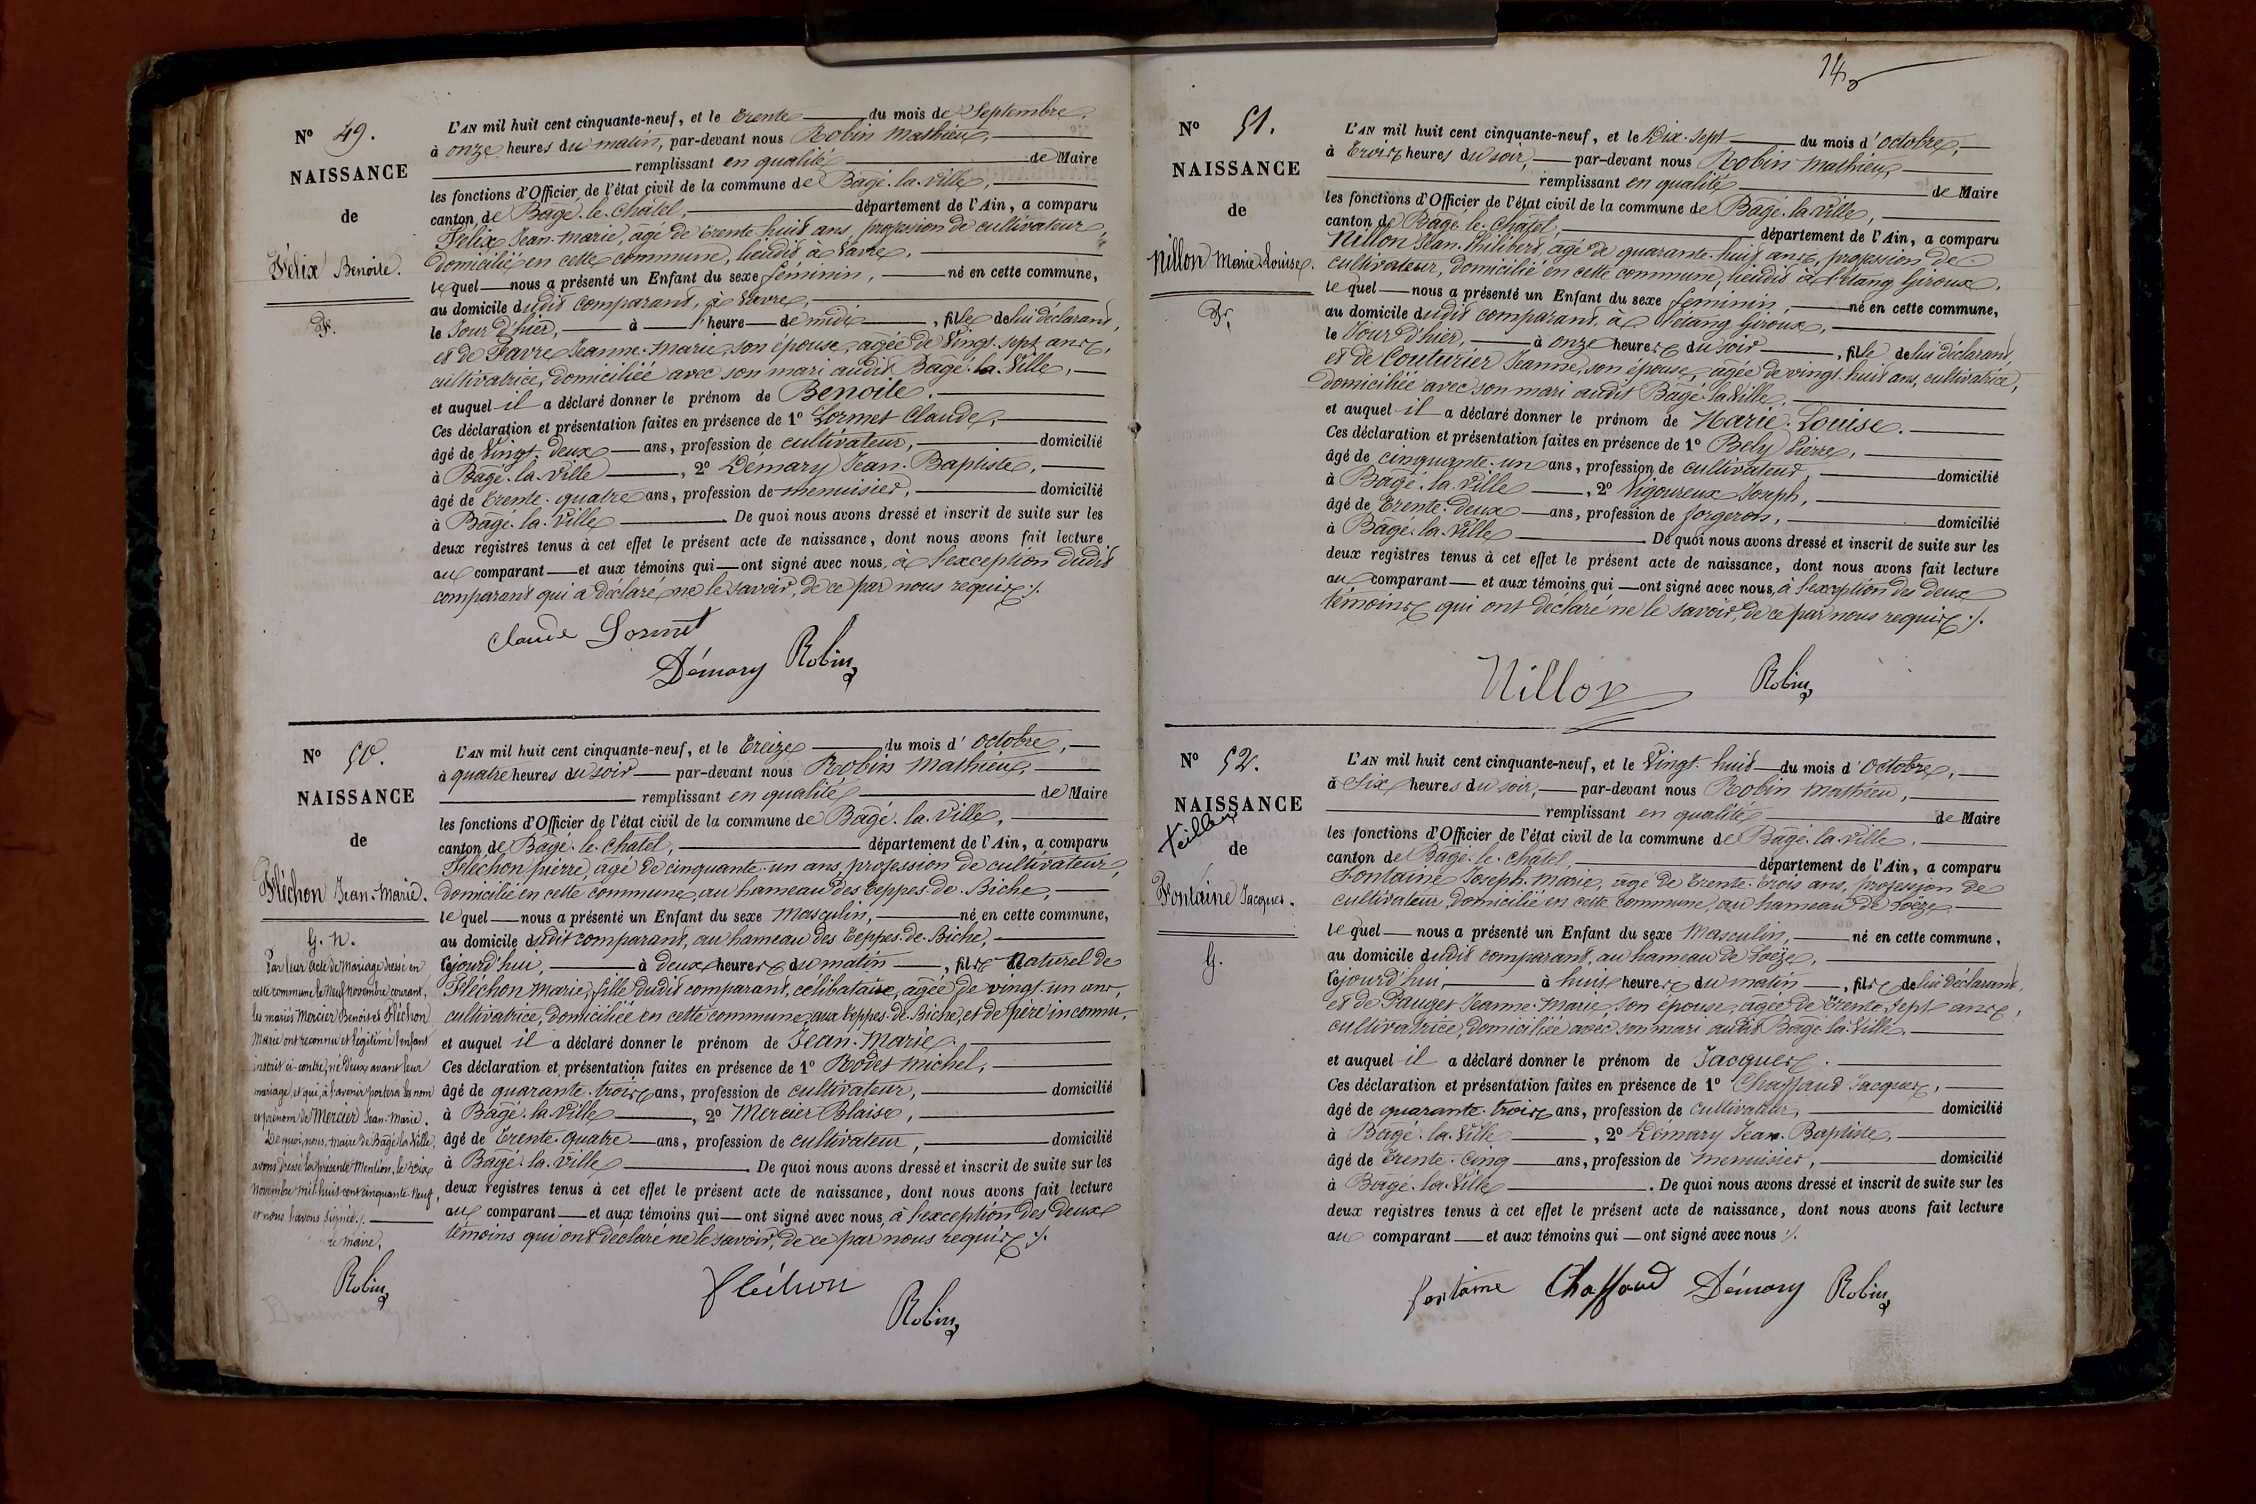 N° 49.
NAISSANCE
de
Félix Benoite.
F.
L'AN mil huit cent cinquante-neuf, et le trente du mois de Septembre,
à onze heures du matin, par-devant nous Robin Mathieu,
remplissant en qualité de Maire
les fonctions d'Officier de l'état civil de la commune de Bâgé-la-Ville,
canton de Bâgé-le-Châtel, département de l'Ain, a comparu
Félix Jean-Marie, âgé de trente huit ans, profession de cultivateur,
domicilié en cette commune, lieudit à Vavre,
lequel nous a présenté un Enfant du sexe féminin, né en cette commune,
au domicile dudit comparant, à Vavre,
le Jour d'hier, à l'heure de midi, fille de lui déclarant,
et de Favre Jeanne-Marie, son épouse, agée de Vingt-sept ans,
cultivatrice, domiciliée avec son mari audit Bâgé-la-Ville,
et auquel il a déclaré donner le prénom de Benoite.
Ces déclaration et présentation faites en présence de 1° Lormet Claude,
âgé de Vingt-deux ans, profession de cultivateur, domicilié
à Bâgé-la-Ville, 2° Démary Jean-Baptiste,
âgé de trente-quatre ans, profession de menuisier, domicilié
à Bâgé-la-Ville. De quoi nous avons dressé et inscrit de suite sur les
deux registres tenus à cet effet le présent acte de naissance, dont nous avons fait lecture
au comparant et aux témoins qui ont signé avec nous, à l'exception dudit
comparant qui a déclaré ne le savoir, de ce par nous requis ./.
Claude Lormet
Démary Robin
N° 50.
NAISSANCE
de
Fléchon Jean-Marie.
G. N.
Par leur acte de Mariage dressé en
cette commune le Neuf Novembre courant,
les mariés Mercier Benoit et Fléchon
Marie ont reconnu et légitimé l'enfant
inscrit ci-contre, né d'eux avant leur
mariage, et qui, à l'avenir portera les nom
et prénom de Mercier Jean-Marie.
De quoi, nous, maire de Bâgé-la-Ville,
avons dressé la présente Mention, le dix
Novembre mil huit cent cinquante-Neuf,
et nous l'avons signée ./.
Le Maire,
Robin
L'AN mil huit cent cinquante-neuf, et le treize du mois d'octobre,
à quatre heures du soir par-devant nous Robin Mathieu,
remplissant en qualité de Maire
les fonctions d'Officier de l'état civil de la commune de Bâgé-la-Ville,
canton de Bâgé-le-Châtel, département de l'Ain, a comparu
Fléchon pierre, âgé de cinquante-un ans, profession de cultivateur,
domicilié en cette commune, au hameau des teppes-de-Biche,
lequel nous a présenté un Enfant du sexe Masculin, né en cette commune,
au domicile dudit comparant, au hameau des teppes-de-Biche,
cejourd'hui, à deux heures du matin, fils Naturel de
Fléchon Marie, fille dudit comparant, célibataire, agée de vingt-un ans,
cultivatrice, domiciliée en cette commune, aux teppes-de-Biche, et de père inconnu,
et auquel il a déclaré donner le prénom de Jean-Marie.
Ces déclaration et présentation faites en présence de 1° Rodet Michel,
âgé de quarante-trois ans, profession de cultivateur, domicilié
à Bâgé-la-Ville, 2° Mercier Blaise,
âgé de trente-quatre ans, profession de cultivateur, domicilié
à Bâgé-la-Ville. De quoi nous avons dressé et inscrit de suite sur les
deux registres tenus à cet effet le présent acte de naissance, dont nous avons fait lecture
au comparant et aux témoins qui ont signé avec nous, à l'exception des deux
témoins qui ont déclaré ne le savoir, de ce par nous requis ./.
fléchon
Robin
N° 51.
NAISSANCE
de
Nillon Marie-Louise.
F.
L'AN mil huit cent cinquante-neuf, et le Dix-Sept du mois d'octobre,
à trois heures du soir, par-devant nous Robin Mathieu,
remplissant en qualité de Maire
les fonctions d'Officier de l'état civil de la commune de Bâgé-la-Ville,
canton de Bâgé-le-Châtel, département de l'Ain, a comparu
Nillon Jean-Philibert, âgé de quarante-huit ans, profession de
cultivateur, domicilié en cette commune, lieudit à l'étang Giroux,
lequel nous a présenté un Enfant du sexe féminin né en cette commune,
au domicile dudit comparant, à l'étang Giroux,
le Jour d'hier, à onze heures du soir, fille de lui déclarant,
et de Couturier Jeanne, son épouse, agée de vingt-huit ans, cultivatrice,
domiciliée avec son mari audit Bâgé-la-Ville.
et auquel il a déclaré donner le prénom de Marie-Louise.
Ces déclaration et présentation faites en présence de 1° Bely Pierre,
âgé de cinquante-un ans, profession de cultivateur, domicilié
à Bâgé-la-Ville, 2° Vigoureux Joseph,
âgé de trente-deux ans, profession de forgeron, domicilié
à Bâgé-la-Ville. De quoi nous avons dressé et inscrit de suite sur les
deux registres tenus à cet effet le présent acte de naissance, dont nous avons fait lecture
au comparant et aux témoins qui ont signé avec nous, à l'exception des deux
témoins qui ont déclaré ne le savoir, de ce par nous requis ./.
Nillon Robin
N° 52.
NAISSANCE
de
Fontaine Jacques.
G.
L'AN mil huit cent cinquante-neuf, et le Vingt-huit du mois d'octobre,
à Six heures du soir, par-devant nous Robin Mathieu,
remplissant en qualité de Maire
les fonctions d'Officier de l'état civil de la commune de Bâgé-la-Ville,
canton de Bâgé-le-Châtel, département de l'Ain, a comparu
Fontaine Joseph-Marie, âgé de trente-trois ans, profession de
cultivateur, domicilié en cette commune, au hameau de Loëze
lequel nous a présenté un Enfant du sexe Masculin, né en cette commune,
au domicile dudit comparant, au hameau de Loëze,
cejourd'hui, à huit heures du matin, fils de lui déclarant,
et de Pauget Jeanne-Marie, son épouse, agée de trente-Sept ans,
cultivatrice, domiciliée avec son mari audit Bâgé-la-Ville,
et auquel il a déclaré donner le prénom de Jacques.
Ces déclaration et présentation faites en présence de 1° Chaffaud Jacques,
âgé de quarante-trois ans, profession de cultivateur, domicilié
à Bâgé-la-Ville, 2° Démary Jean-Baptiste,
âgé de trente-cinq ans, profession de menuisier, domicilié
à Bâgé-la-Ville. De quoi nous avons dressé et inscrit de suite sur les
deux registres tenus à cet effet le présent acte de naissance, dont nous avons fait lecture
au comparant et aux témoins qui ont signé avec nous ./.
fontaine Chaffaud Démary Robin